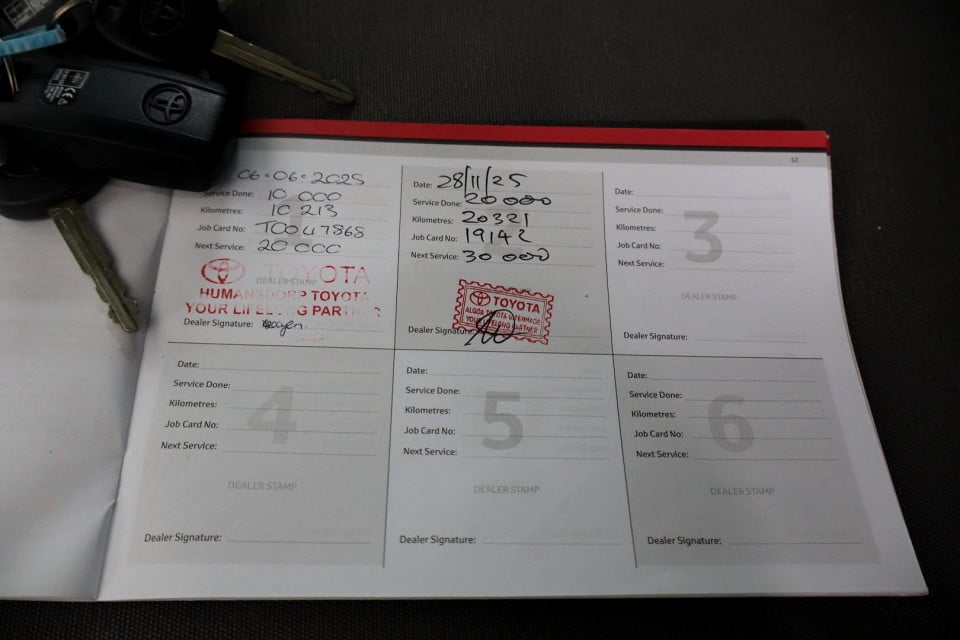 12
06.06.2025
Service Done: 10 000
Kilometres: 10 213
Job Card No: T0047565
Next Service: 20 000
TOYOTA
DEALER STAMP
HUMANSDORP TOYOTA
YOUR LIFELONG PARTNER
Dealer Signature:
Date: 28/11/25
Service Done: 20 000
Kilometres: 20321
Job Card No: 19142
Next Service: 30 000
TOYOTA
ALGOA TOYOTA UITENHAGE
YOUR LIFELONG PARTNER
Dealer Signature:
3
Date:
Service Done:
Kilometres:
Job Card No:
Next Service:
DEALER STAMP
Dealer Signature:
4
Date:
Service Done:
Kilometres:
Job Card No:
Next Service:
DEALER STAMP
Dealer Signature:
5
Date:
Service Done:
Kilometres:
Job Card No:
Next Service:
DEALER STAMP
Dealer Signature:
6
Date:
Service Done:
Kilometres:
Job Card No:
Next Service:
DEALER STAMP
Dealer Signature: